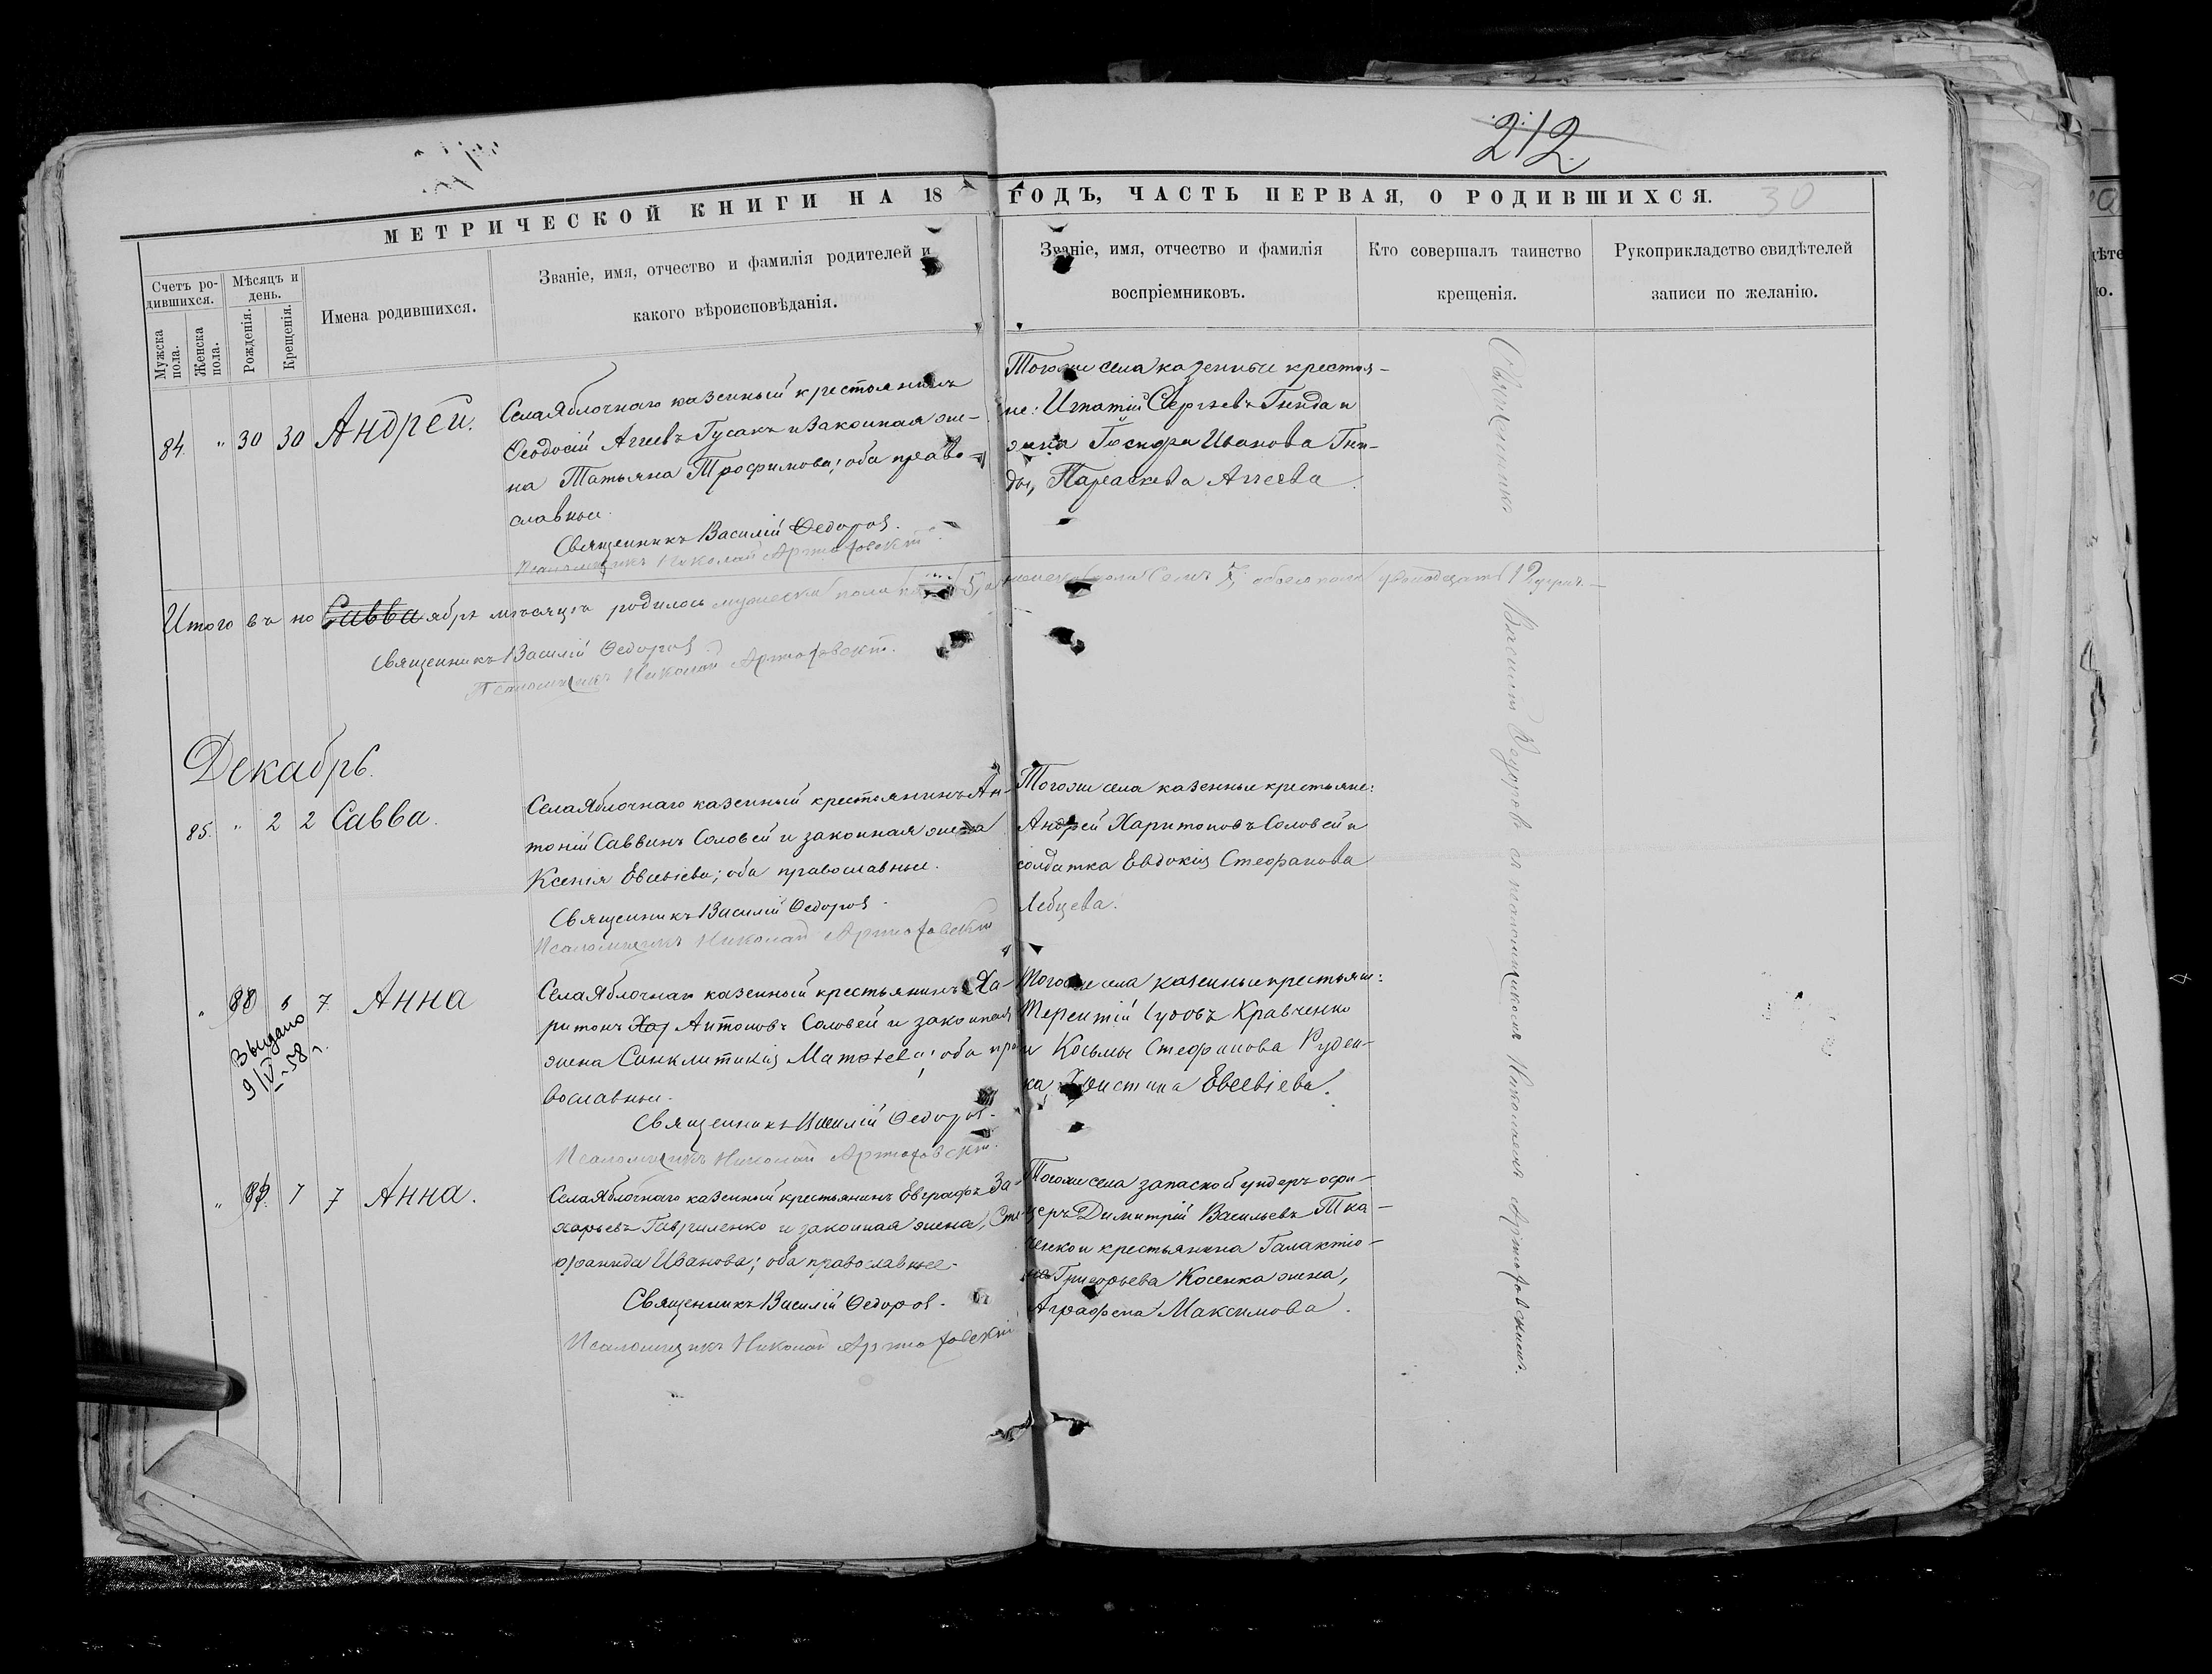 212
30
МЕТРИЧЕСКОЙ КНИГИ НА 18
ГОДЪ, ЧАСТЬ ПЕРВАЯ, О РОДИВШИХСЯ.
Счетъ ро-
дившихся.
Мужска
пола.
Женска
пола.
Мѣсяцъ и
день.
Рожденія.
Крещенія.
Имена родившихся.
Званіе, имя, отчество и фамилія родителей и
какого вѣроисповѣданія.
Званіе, имя, отчество и фамилія
воспріемниковъ.
Кто совершалъ таинство
крещенія.
Рукоприкладство свидѣтелей
записи по желанію.
84. " 30 30 Андрей.
Села Яблочнаго казенный крестьянинъ
Ѳеодосій Агеевъ Гусакъ и законная же-
на Татьяна Трофимова; оба право-
славные.
Священникъ Василій Ѳедоровъ.
Псаломщикъ Николай
Тогоже села казенные крестья-
не: Игнатій Сергѣевъ Гнида и
жена Иванова Гни-
ды, Параскева Агеева.
Итого въ но Савва ябрѣ мѣсяцѣ родилось мужеска пола 5, а женска пола семь 7, обоего пола двѣнадцать 12 душъ.
Священникъ Василій Ѳедоровъ
Псаломщикъ Николай
Декабрь.
85. " 2 2 Савва.
Села Яблочнаго казенный крестьянинъ Ан-
тоній Саввинъ Соловей и законная жена
Ксенія Евсевіева; оба православные.
Священникъ Василій Ѳедоровъ.
Псаломщикъ Николай
Тогоже села казенные крестьяне:
Андрей Харитоновъ Соловей и
солдатка Евдокія Стефанова
Лебцева.
" 88 6 7. Анна
Выдано
9/IV-58 г.
Села Яблочнаго казенный крестьянинъ Ха-
ритонъ Хар Антоновъ Соловей и законная
жена Синклитикія Матѳеева; оба пра-
вославные.
Священникъ Василій Ѳедоровъ.
Псаломщикъ Николай
Тогоже села казенные крестьяне:
Терентій Кравченко
и Косьмы Стефанова Руден-
ка, Христина Евсевіева.
" 89. 7 7 Анна.
Села Яблочнаго казенный крестьянинъ Евграфъ За-
харьевъ Гавриленко и законная жена, Сте-
фанида Иванова; оба православные.
Священникъ Василій Ѳедоровъ.
Псаломщикъ Николай
Тогоже села запасной ундеръ офи-
церъ Димитрій Васильевъ Тка-
ченко и крестьянина Галактіо-
на Григорьева Косенка жена,
Аграфена Максимова.
Священникъ Василій Ѳедоровъ съ псаломщикомъ Николаемъ